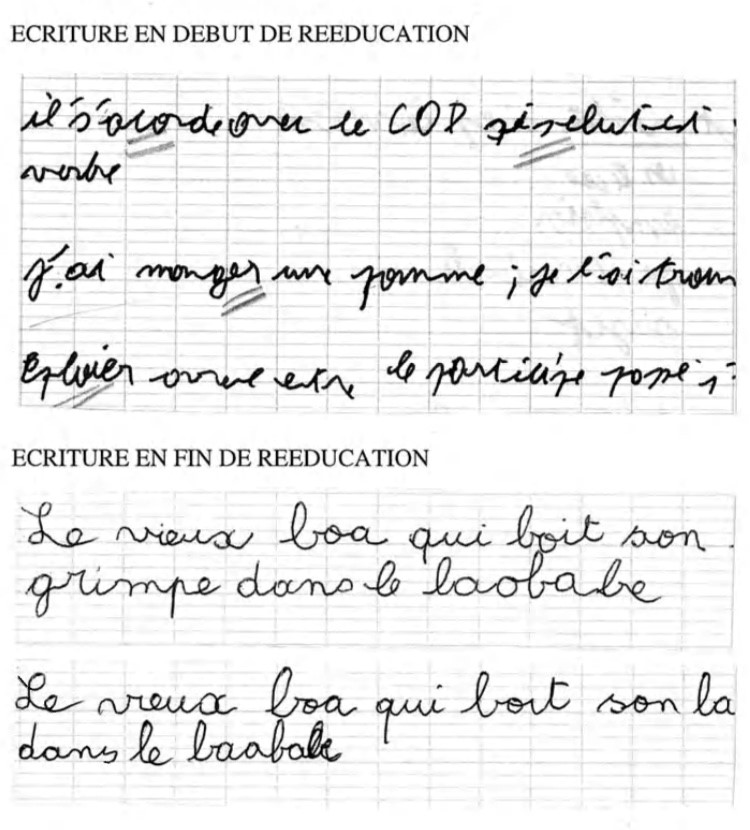 ECRITURE EN DEBUT DE REEDUCATION
il s'acorde avec le COD si celui est
verbe
j'ai manger une pomme ; je l'ai
Employer avec le participe passé
ECRITURE EN FIN DE REEDUCATION
Le vieux boa qui boit son
grimpe dans le baobabe
Le vieux boa qui boit son la
dans le baobab